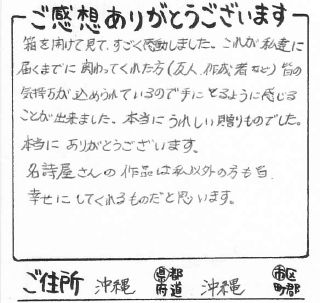 ご感想ありがとうございます
箱を開けて見て、すごく感動しました。これが私達に
届くまでに関わってくれた方(友人、作成者など)皆の
気持ちが込められているので手にとるように感じる
ことが出来ました。本当にうれしい贈りものでした。
本当にありがとうございます。
名詩屋さんの作品は私以外の方も皆
幸せにしてくれるものだと思います。
ご住所 沖縄 都道府県 沖縄 市区町郡